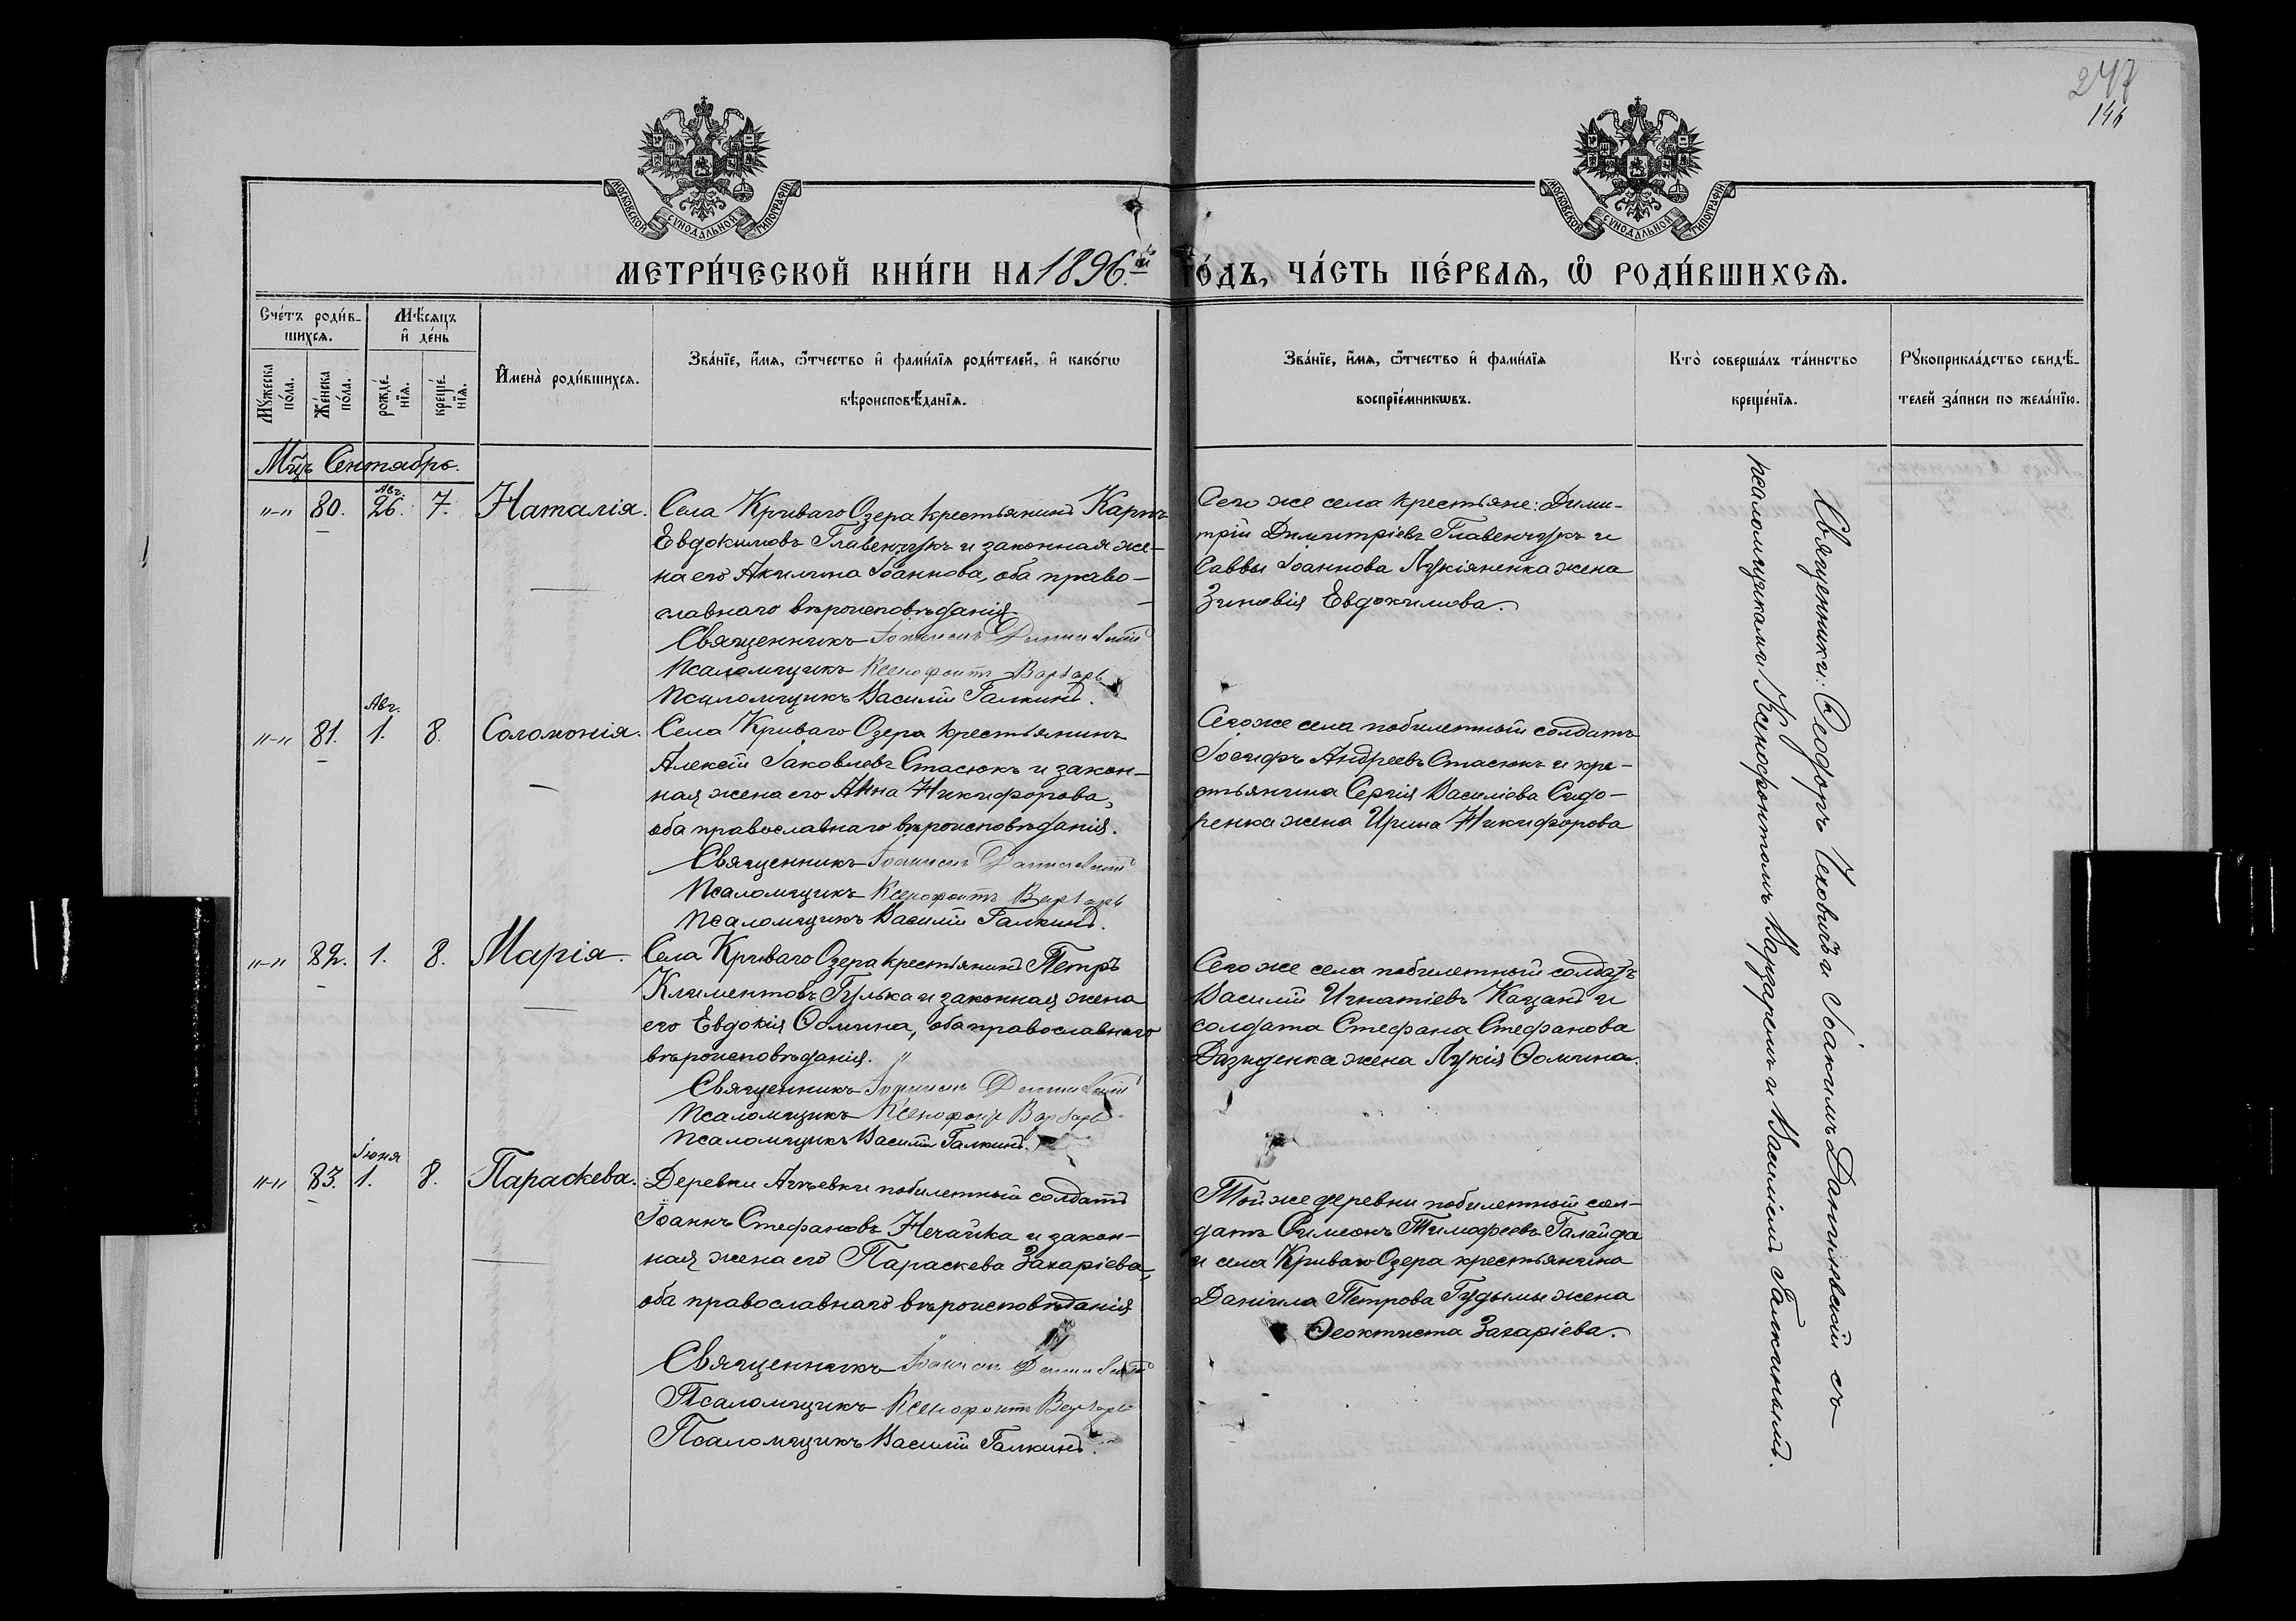 247
146
МОСКОВСКОЙ СУНОДАЛЬНОЙ ТИПОГРАФІИ
МОСКОВСКОЙ СУНОДАЛЬНОЙ ТИПОГРАФІИ
МЕТРИ́ЧЕСКОЙ КНИ́ГИ НА 1896.й ГО́ДЪ, ЧА́СТЬ ПЕ́РВАѦ, Ѡ РОДИ́ВШИХСѦ.
Сче́тъ роди́в-
шихсѧ.
Мꙋжеска по́ла.
Же́нска по́ла.
Мѣ́сѧцъ и҆ де́нь
рожде́-
нїѧ.
креще́-
нїѧ.
И҆мена̀ роди́вшихсѧ.
Зва́нїе, и҆́мѧ, ѻ҆́тчество и҆ фами́лїѧ роди́телей, и҆ како́гѡ
вѣроисповѣ́данїѧ.
Зва́нїе, и҆́мѧ, ѻ҆́тчество и҆ фами́лїѧ
воспрїе́мникѡвъ.
Кто̀ соверша́лъ та́инство
креще́нїѧ.
Рꙋкоприкла́дство свидѣ́-
телей за́писи по жела́нїю.
Мцъ Сентябрь.
"-" 80. Авг. 26. 7. Наталія.
Села Криваго Озера крестьянинъ Карпъ
Евдокимовъ Главенчукъ и законная же-
на его Акилина Іоаннова, оба право-
славнаго вѣроисповѣданія
Священникъ Іоакимъ
Псаломщикъ Ксенофонтъ Варзарь
Псаломщикъ Василій Галкинъ.
Сего же села крестьяне: Дими-
трій Димитріевъ Главенчукъ и
Саввы Іоаннова Лукіяненка жена
Зиновія Евдокимова.
"-" 81. Авг. 1. 8. Соломонія.
Села Криваго Озера крестьянинъ
Алексій Іаковлевъ Стасюкъ и закон-
ная жена его Анна Никифорова,
оба православнаго вѣроисповѣданія.
Священникъ Іоакимъ
Псаломщикъ Ксенофонтъ Варзарь
Псаломщикъ Василій Галкинъ.
Сего же села побилетный солдатъ
Іосифъ Андреевъ Стасюкъ и кре-
стьянина Сергія Василіева Сидо-
ренка жена Ирина Никифорова
"-" 82. 1. 8. Марія.
Села Криваго Озера крестьянинъ Петръ
Климентовъ Гулька и законная жена
его Евдокія Ѳомина, оба православнаго
вѣроисповѣданія. "
Священникъ Іоакимъ
Псаломщикъ Ксенофонтъ Варзарь
Псаломщикъ Василій Галкинъ.
Сего же села побилетный солдатъ
Василій Игнатіевъ Кацанъ и
солдата Стефана Стефанова
жена Лукія Ѳомина.
"-" 83. Іюня 1. 8. Параскева.
Деревни побилетный солдатъ
Іоаннъ Стефановъ Нечайка и закон-
ная жена его Параскева Захаріева,
оба православнаго вѣроисповѣданія
Священникъ Іоакимъ
Псаломщикъ Ксенофонтъ Варзарь
Псаломщикъ Василій Галкинъ.
Той же деревни побилетный сол-
датъ Симеонъ Тимофеевъ Галайда
и села Криваго Озера крестьянина
Даніила Петрова Гудымы жена
Ѳеоктиста Захаріева.
Священники: Ѳеодоръ Чеховичъ и Іоакимъ Данилевскій съ
псаломщиками Ксенофонтомъ Варзаремъ и Василіемъ Галкинымъ.